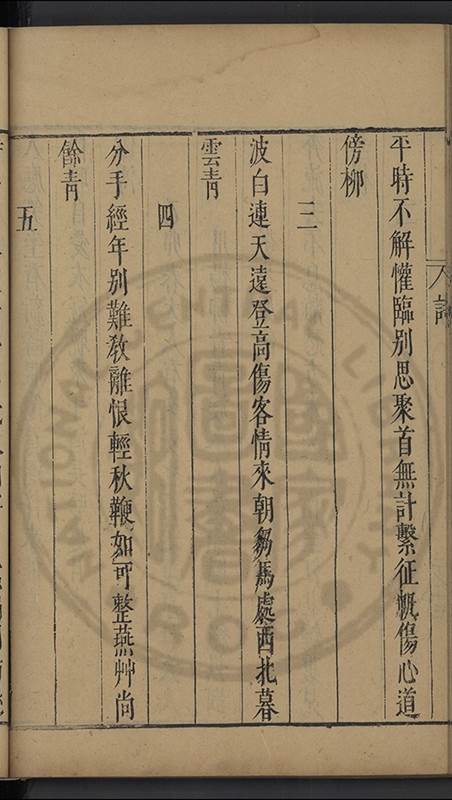 平時不解懽臨别思聚首無計繫征帆傷心道
傍柳
三
波白連天遠登高傷客情來朝芻馬處西北暮
雲青
四
分手經年别難敎離恨輕秋鞭如可整燕艸尚
餘青
五